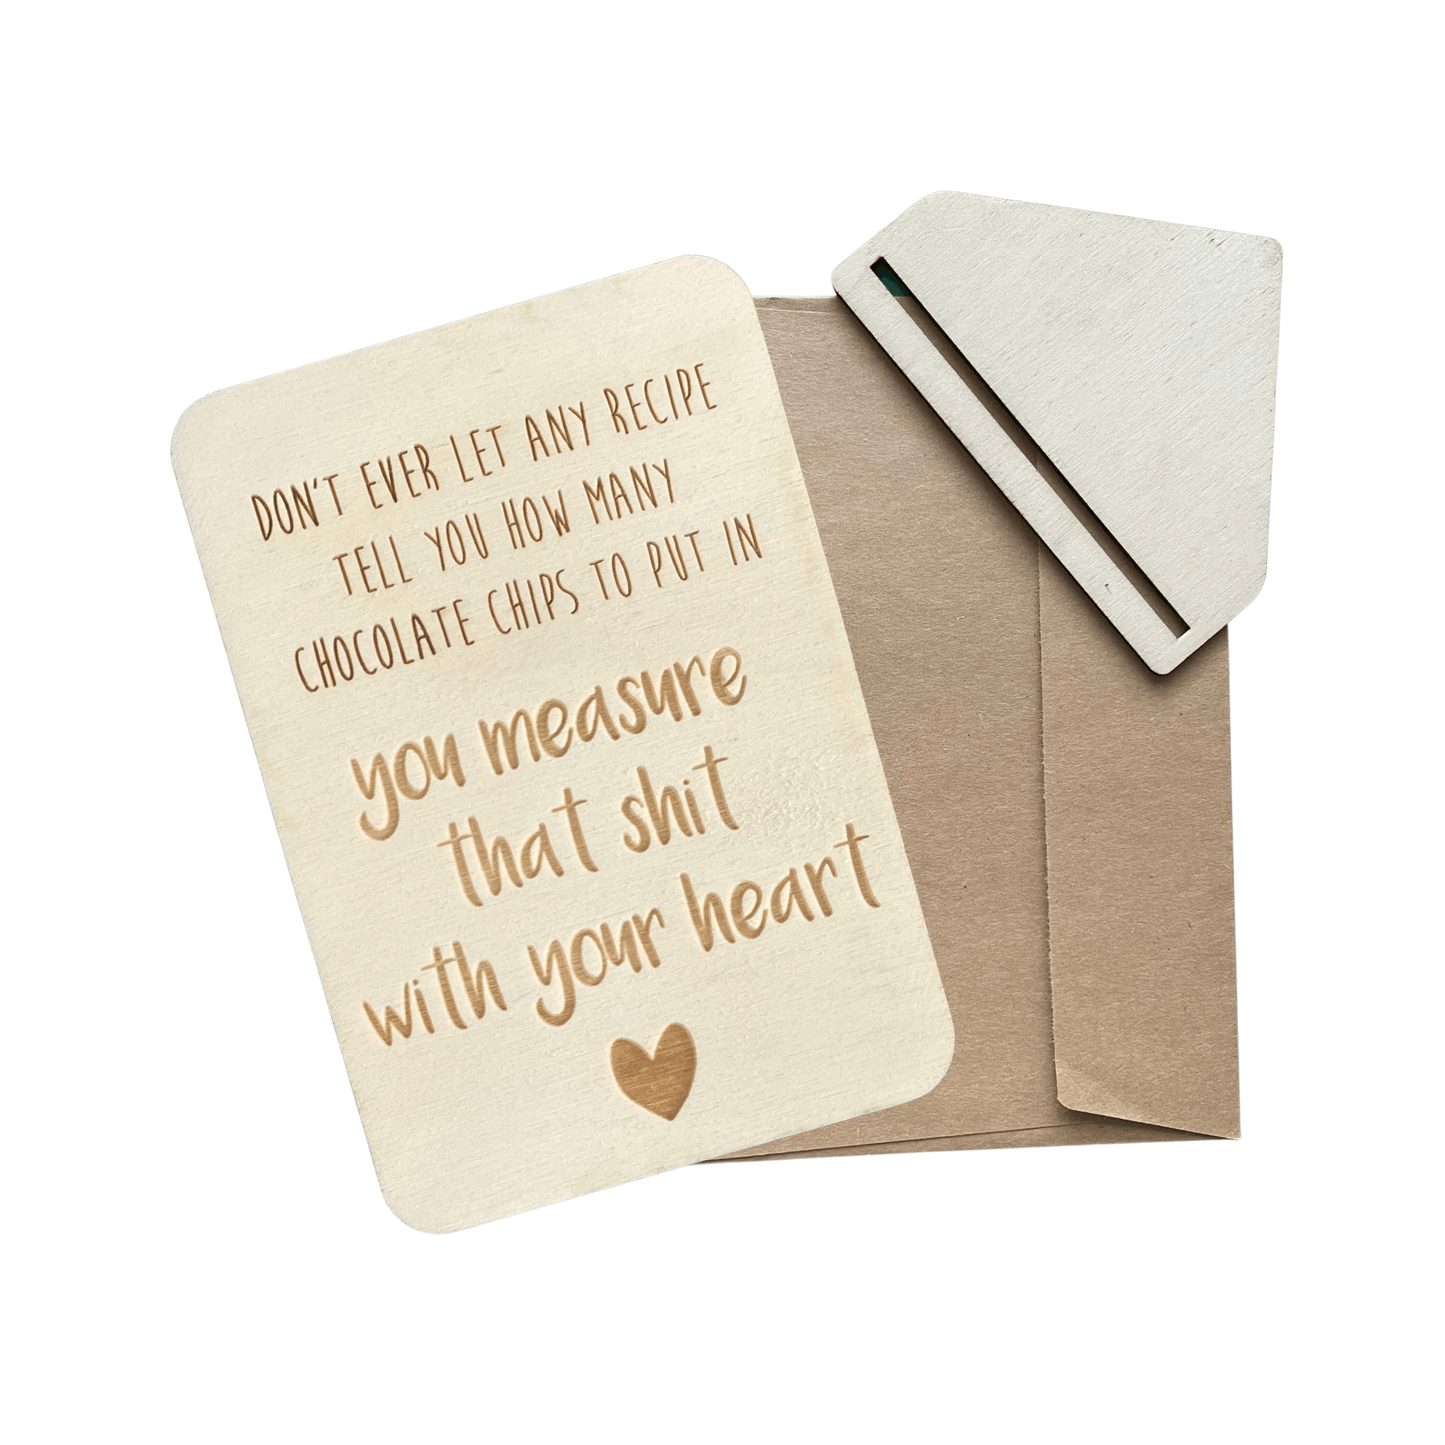 DON'T EVER LET ANY RECIPE
TELL YOU HOW MANY
CHOCOLATE CHIPS TO PUT IN
you measure
that shit
with your heart